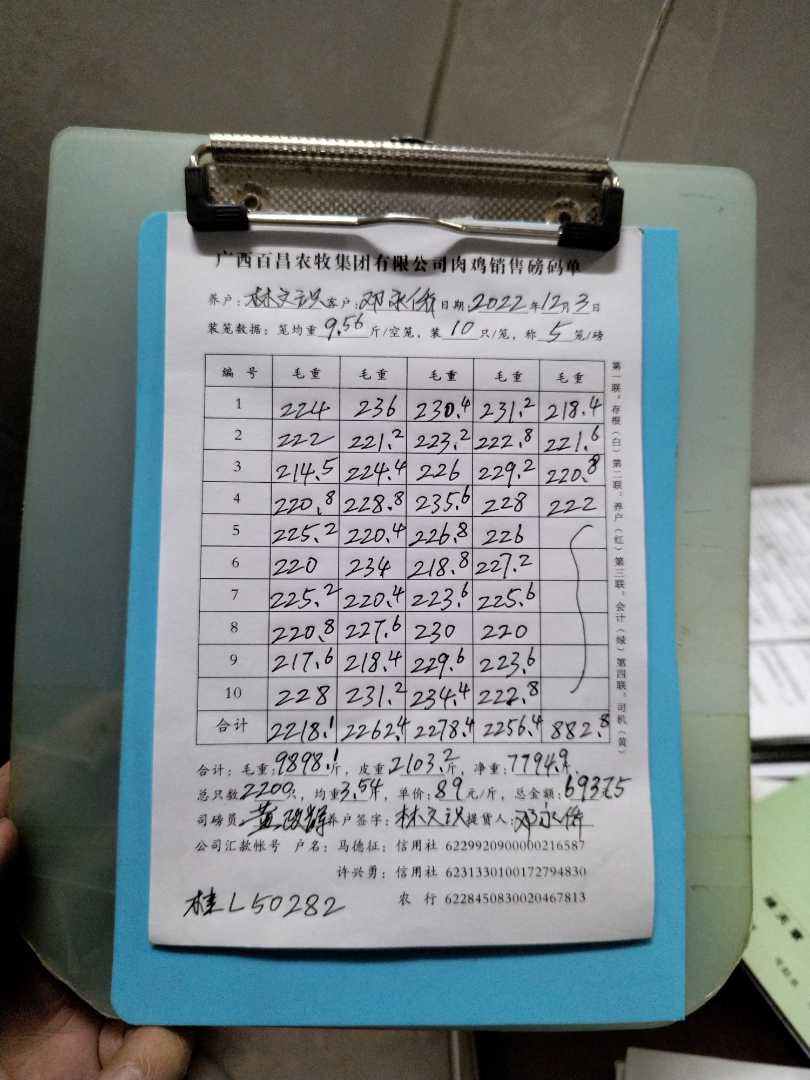 广西百昌农牧集团有限公司肉鸡销售磅码单
养户:林文识客户:邓永侨日期2022年12月3日
装笼数据:笼均重9.56斤/空笼,装10只/笼,称5笼/磅
编 号 毛 重 毛 重 毛 重 毛 重 毛 重
1 224 236 230.4 231.2 218.4
2 222 221.2 223.2 222.8 221.6
3 214.5 224.4 226 229.2 220.8
4 220.8 228.8 235.6 228 222
5 225.2 220.4 226.8 226
6 220 234 218.8 227.2
7 225.2 220.4 223.6 225.6
8 220.8 227.6 230 220
9 217.6 218.4 229.6 223.6
10 228 231.2 234.4 222.8
合计 2218.1 2262.4 2278.4 2256.4 882.8
第一联,存根(白)第二联,养户(红)第三联,会计(绿)第四联,司机(黄)
合计:毛重:9898.1斤,皮重2103.2斤,净重:7794.9斤.
总只数2200只,均重3.54斤,单价:89元/斤,总金额:69375
司磅员:黄 养户签字:林文识提货人:邓永侨
公司汇款帐号 户名:马德征:信用社 6229920900000216587
许兴勇:信用社 6231330100172794830
农 行 6228450830020467813
桂L50282